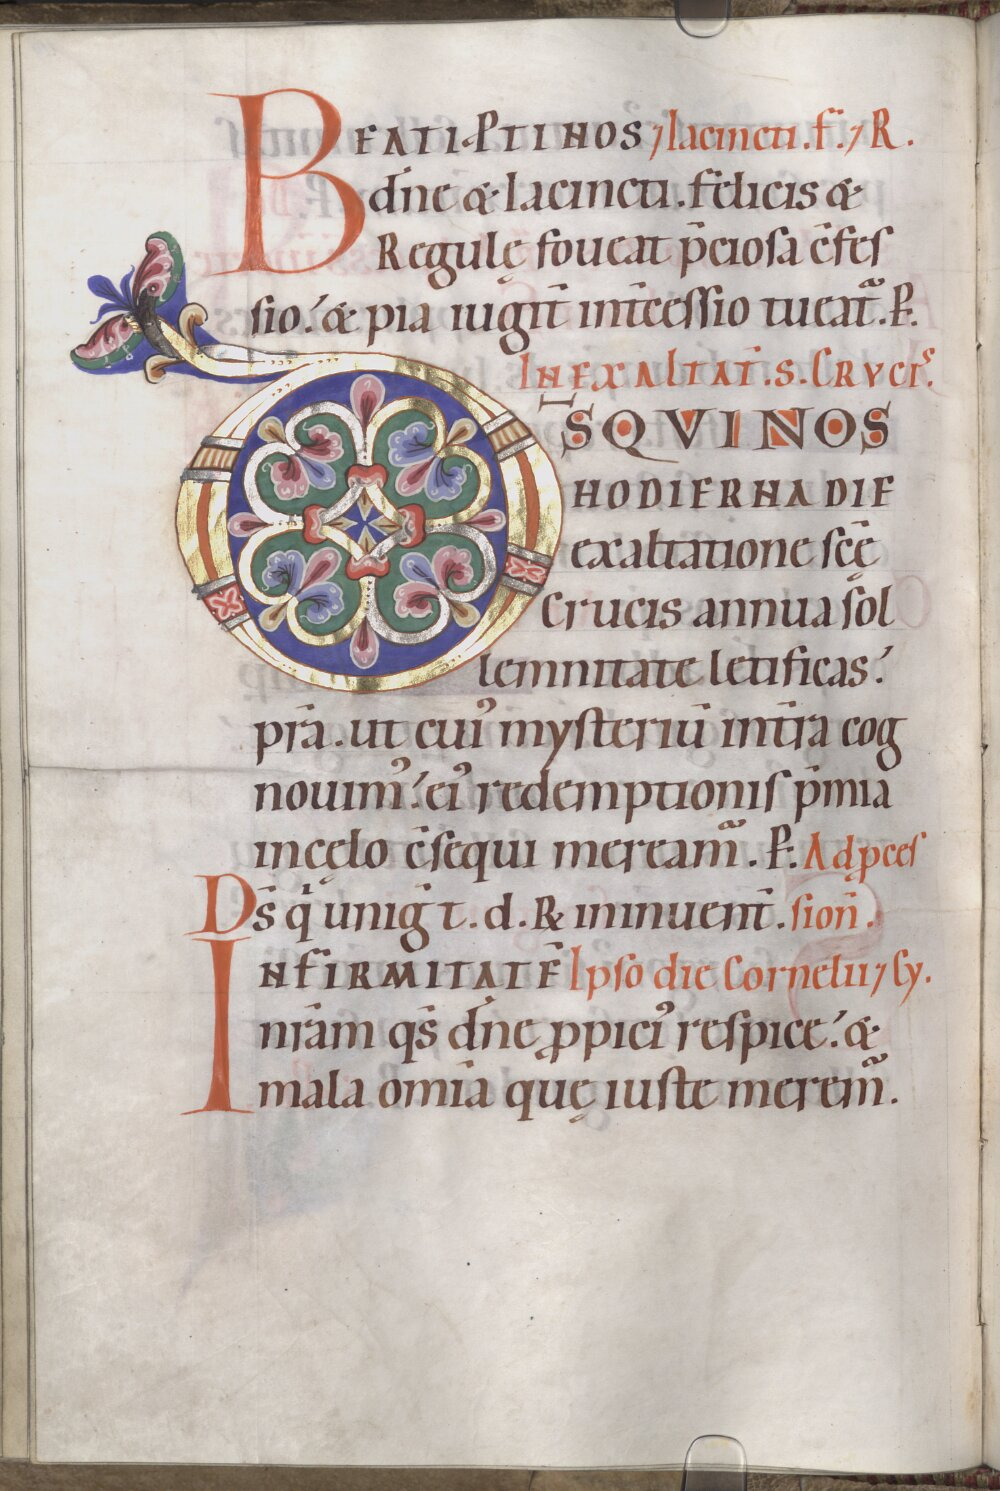 BEATI·PTI NOS ⁊ Iacincti . f̄ . ⁊ R .
dn̄e & Iacincti . felicis &
Regulę foueat p̄ciosa c̄fes
sio : & pia iugit̄ int̄cessio tueat̄ . P̄ .
IN EXALTAT̄ . S . CRVCIS .
DS QVI NOS
HODIERNA DIE
exaltatione scē
Crucis annua sol
lemnitate letificas :
pr̄a . ut cui' mysteriū int̄ra cog
nouim' : ei' redemptionis p̄mia
incęlo c̄sequi meream̄ . P̄ . Ad p̄ces
Ds̄ q̄ unig̅ t . d . R & in inuent̄ . sion̄ .
INFIRMITATĒ Ipso die Cornelii ⁊ Cy .
nr̄am qs̄ dn̄e ꝓpici' respice : &
mala om̄ia quę iuste merem̄ .